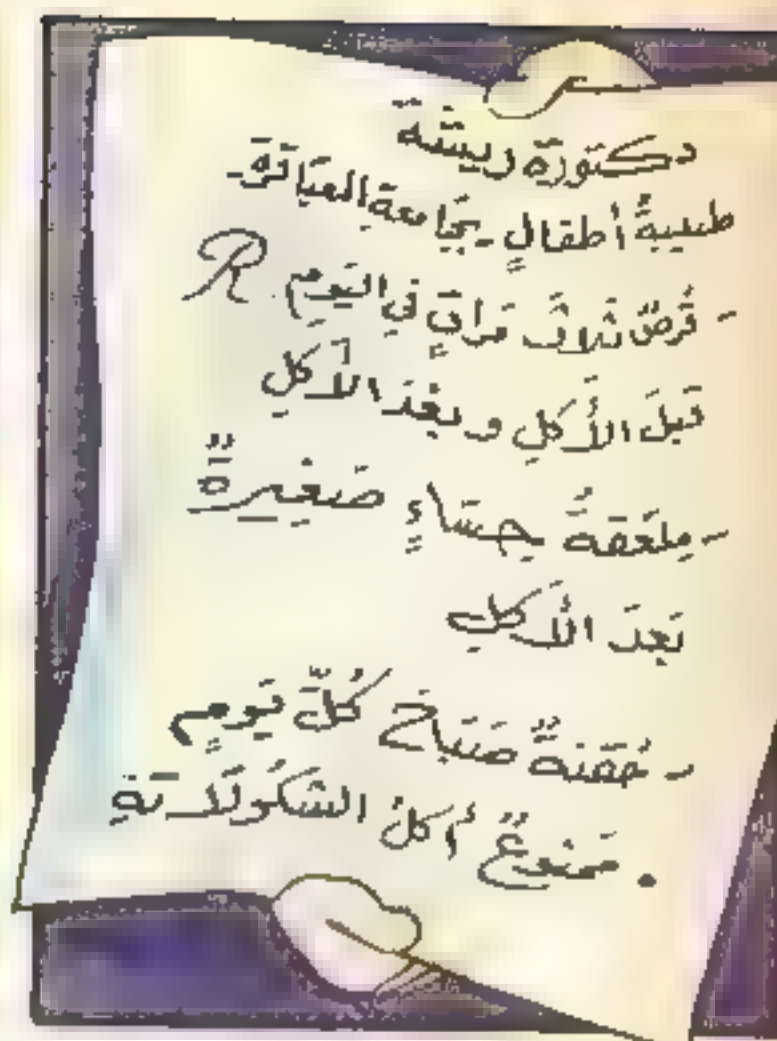 دكتورة ريشة
طبيبةُ أطفالٍ - بجَامعةِ العبَاقرةِ -
- قُرصٌ ثلاثَ مَراتٍ فِي اليَومِ R
قبلَ الأَكلِ وبعْدَ الأَكلِ
- مِلعَقةُ حِسَاءٍ صَغِيرةٌ
بَعدَ الأَكلِ
- حُقنةٌ صَبَاحَ كُلِّ يَومٍ
. مَمنوعٌ أكلُ الشكُولَاتةِ